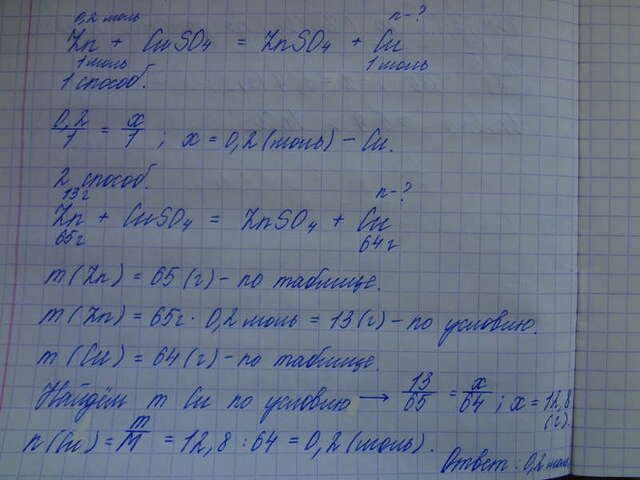 0,2 моль n-?
Zn + CuSO4 = ZnSO4 + Cu
1 моль 1 моль
1 способ.
0,2/1 = x/1 ; x = 0,2 (моль) – Cu.
2 способ.
13г n-?
Zn + CuSO4 = ZnSO4 + Cu
65г 64г
m (Zn) = 65 (г) – по таблице.
m (Zn) = 65г · 0,2 моль = 13 (г) – по условию.
m (Cu) = 64 (г) – по таблице.
Найдём m Cu по условию → 13/65 = x/64 ; x = 12,8
(г).
n (Cu) = m/M = 12,8 : 64 = 0,2 (моль).
Ответ : 0,2 моль